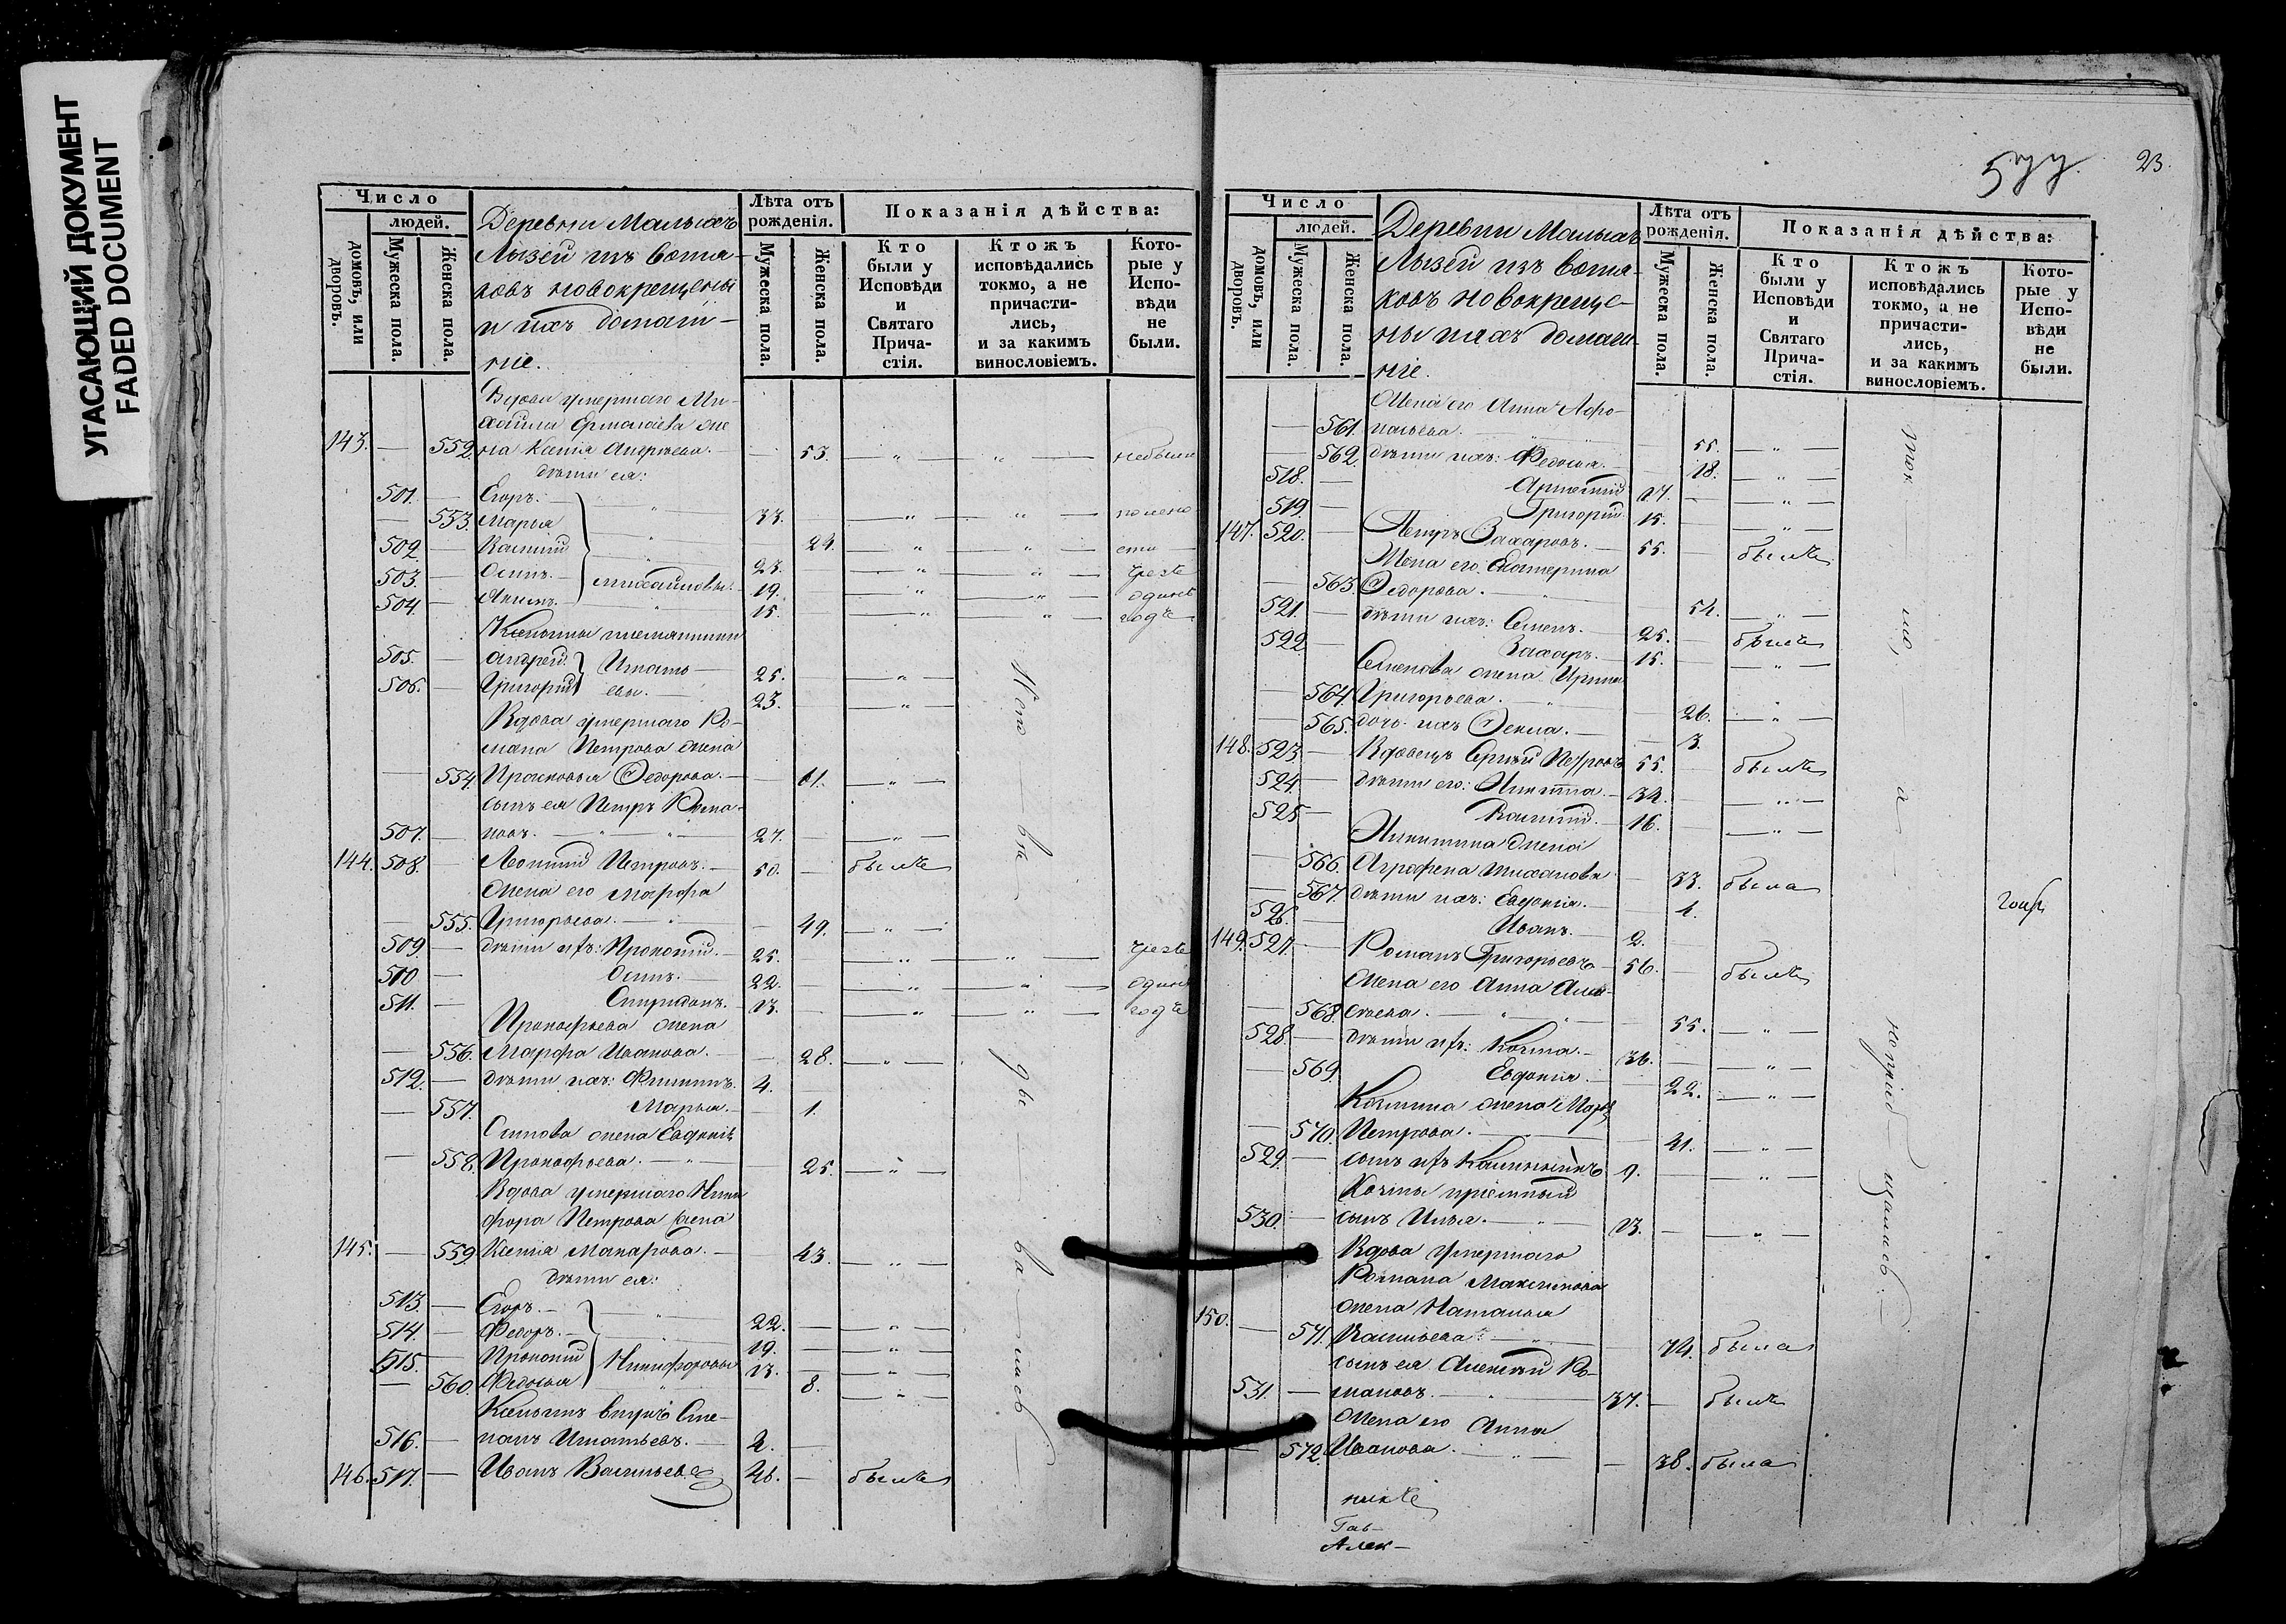 УГАСАЮЩИЙ ДОКУМЕНТ
FADED DOCUMENT
Число
людей.
домовъ, или дворовъ.
Мужеска пола.
Женска пола.
Деревни Малыхъ
Лызей изъ вотя-
ковъ новокрещены
и ихъ домаш-
ніе.
Лѣта отъ рожденія.
Мужеска пола.
Женска пола.
Показанія дѣйства:
Кто были у Исповѣди и Святаго Прича-стія.
Ктожъ исповѣдались токмо, а не причасти-лись, и за какимъ винословіемъ.
Кото-рые у Испо-вѣди не были.
Вдова умершаго Ми-
хаила Ермолаева же
143. — 552. на Ксенія Андреева. — 53. — „ — „ — небыли
дѣти ея:
501. — Егоръ. — 33. — „ — „ —
— 553. Марья 24. — „ — „ —
502. — Василій 23. — „ — „ —
503. — Осипъ. — Михайловы. 19. — „ — „ — одинъ
504. — Акимъ. — 15. — „ — „ — годъ
Ксеньины племянники
505. — Андрей Игнать- 25. — „ —
506. — Григорій евы. 23. — „ —
Вдова умершаго Ро-
мана Петрова жена
— 554. Прасковья Федорова. — 61. — „ —
сынъ ея Петръ Рома-
507. — новъ. — „ — 27. — „ —
144. 508. Леонтій Петровъ. — 50. — былъ
Жена его Марфа
— 555. Григорьева. — „ — 49. — „ —
509. — дѣти ихъ: Прокопій. — 25. — „ — „ —
510 — Осипъ. 22. — „ — „ — одинъ
511. — Спиридонъ. — 13. — „ — „ — годъ
Прокопьева жена
— 556. Марфа Иванова. — 28. — „ —
512. — дѣти ихъ: Филиппъ. 4.
— 557. Марья. — 1.
Осипова жена Евдокія
— 558. Прокофьева. — „ — 25. — „ —
Вдова умершаго Ники
фора Петрова жена
145. — 559. Ксенія Макарова. — 43. — „ —
дѣти ея:
513. — Егоръ. — 22. — „ —
514. — Федоръ. — 19. — „ —
515. — Прокопій Никифоровы 13. — „ —
— 560. Федосья 8. — „ —
Ксеньинъ внукъ Сте-
516. — панъ Игнатьевъ. — 2. —
146. 517. — Иванъ Васильевъ 46. — былъ
577. 23.
Число
людей.
домовъ, или дворовъ.
Мужеска пола.
Женска пола.
Деревни Малыхъ
Лызей изъ вотя-
ковъ новокреще-
ны и ихъ домаш-
ніе.
Лѣта отъ рожденія.
Мужеска пола.
Женска пола.
Показанія дѣйства:
Кто были у Исповѣди и Святаго Прича-стія.
Ктожъ исповѣдались токмо, а не причасти-лись, и за какимъ винословіемъ.
Кото-рые у Испо-вѣди не были.
Жена его Анна Афо-
— 561. насьева. — 55. — „ —
— 562. дѣти ихъ: Федосья. 18. — „ —
518. — Артемій 17. — „ —
519. — Григорій 15. — „ —
147. 520. — Петръ Захаровъ. — 55. — былъ
Жена его: Екатерина
— 563. Федорова. — „ 54. — „ —
521. — дѣти ихъ: Семенъ. — 25. — былъ
522. Захаръ. — 15. — „ —
Семенова жена Ирина
— 564. Григорьева. — „ 26. — „ —
— 565. дочь ихъ Фекла. — 3.
148. 523. — Вдовецъ Сергѣй Петровъ 55. — былъ
524. — дѣти его: Никита. — 34. — „ —
525 — Василій. — 16. — „ —
Никитина жена
— 566. Аграфена Михайлова 33. была
— 567. дѣти ихъ: Евдокія. — 4.
526. — Иванъ. — 2.
149. 527. — Романъ Григорьевъ 56. — былъ
Жена его Анна Алек-
— 568. сѣева. — „ — 55. — „ —
528. — дѣти ихъ: Козма. — 36. — „ —
— 569. Евдокія. — 22. — „ —
Козмина жена Марья
— 570. Петрова. — 41. — „ —
529. — сынъ ихъ 9. — „ —
Козмы пріемный
530. — сынъ Илья. — „ — 13. — „ —
Вдова умершаго
Романа Максимова
жена Наталья
150. — 571. Васильева. — „ 74. была
сынъ ея Алексѣй Ро-
531. — мановъ. — „ — 37. — былъ
Жена его Анна
— 572. Иванова. — „ — 38. была
Гав-
Алек-